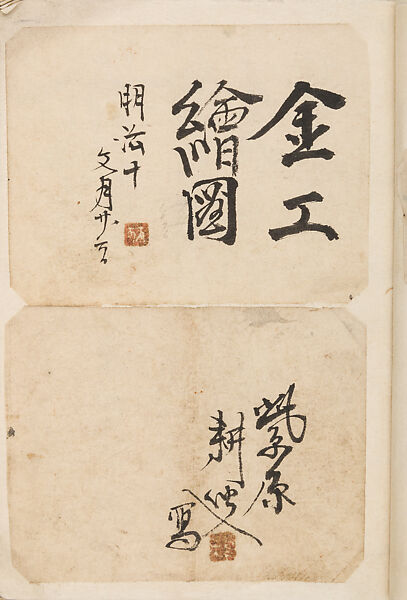 金工
繪圖
明治十
文月廿
紫原
耕
寫